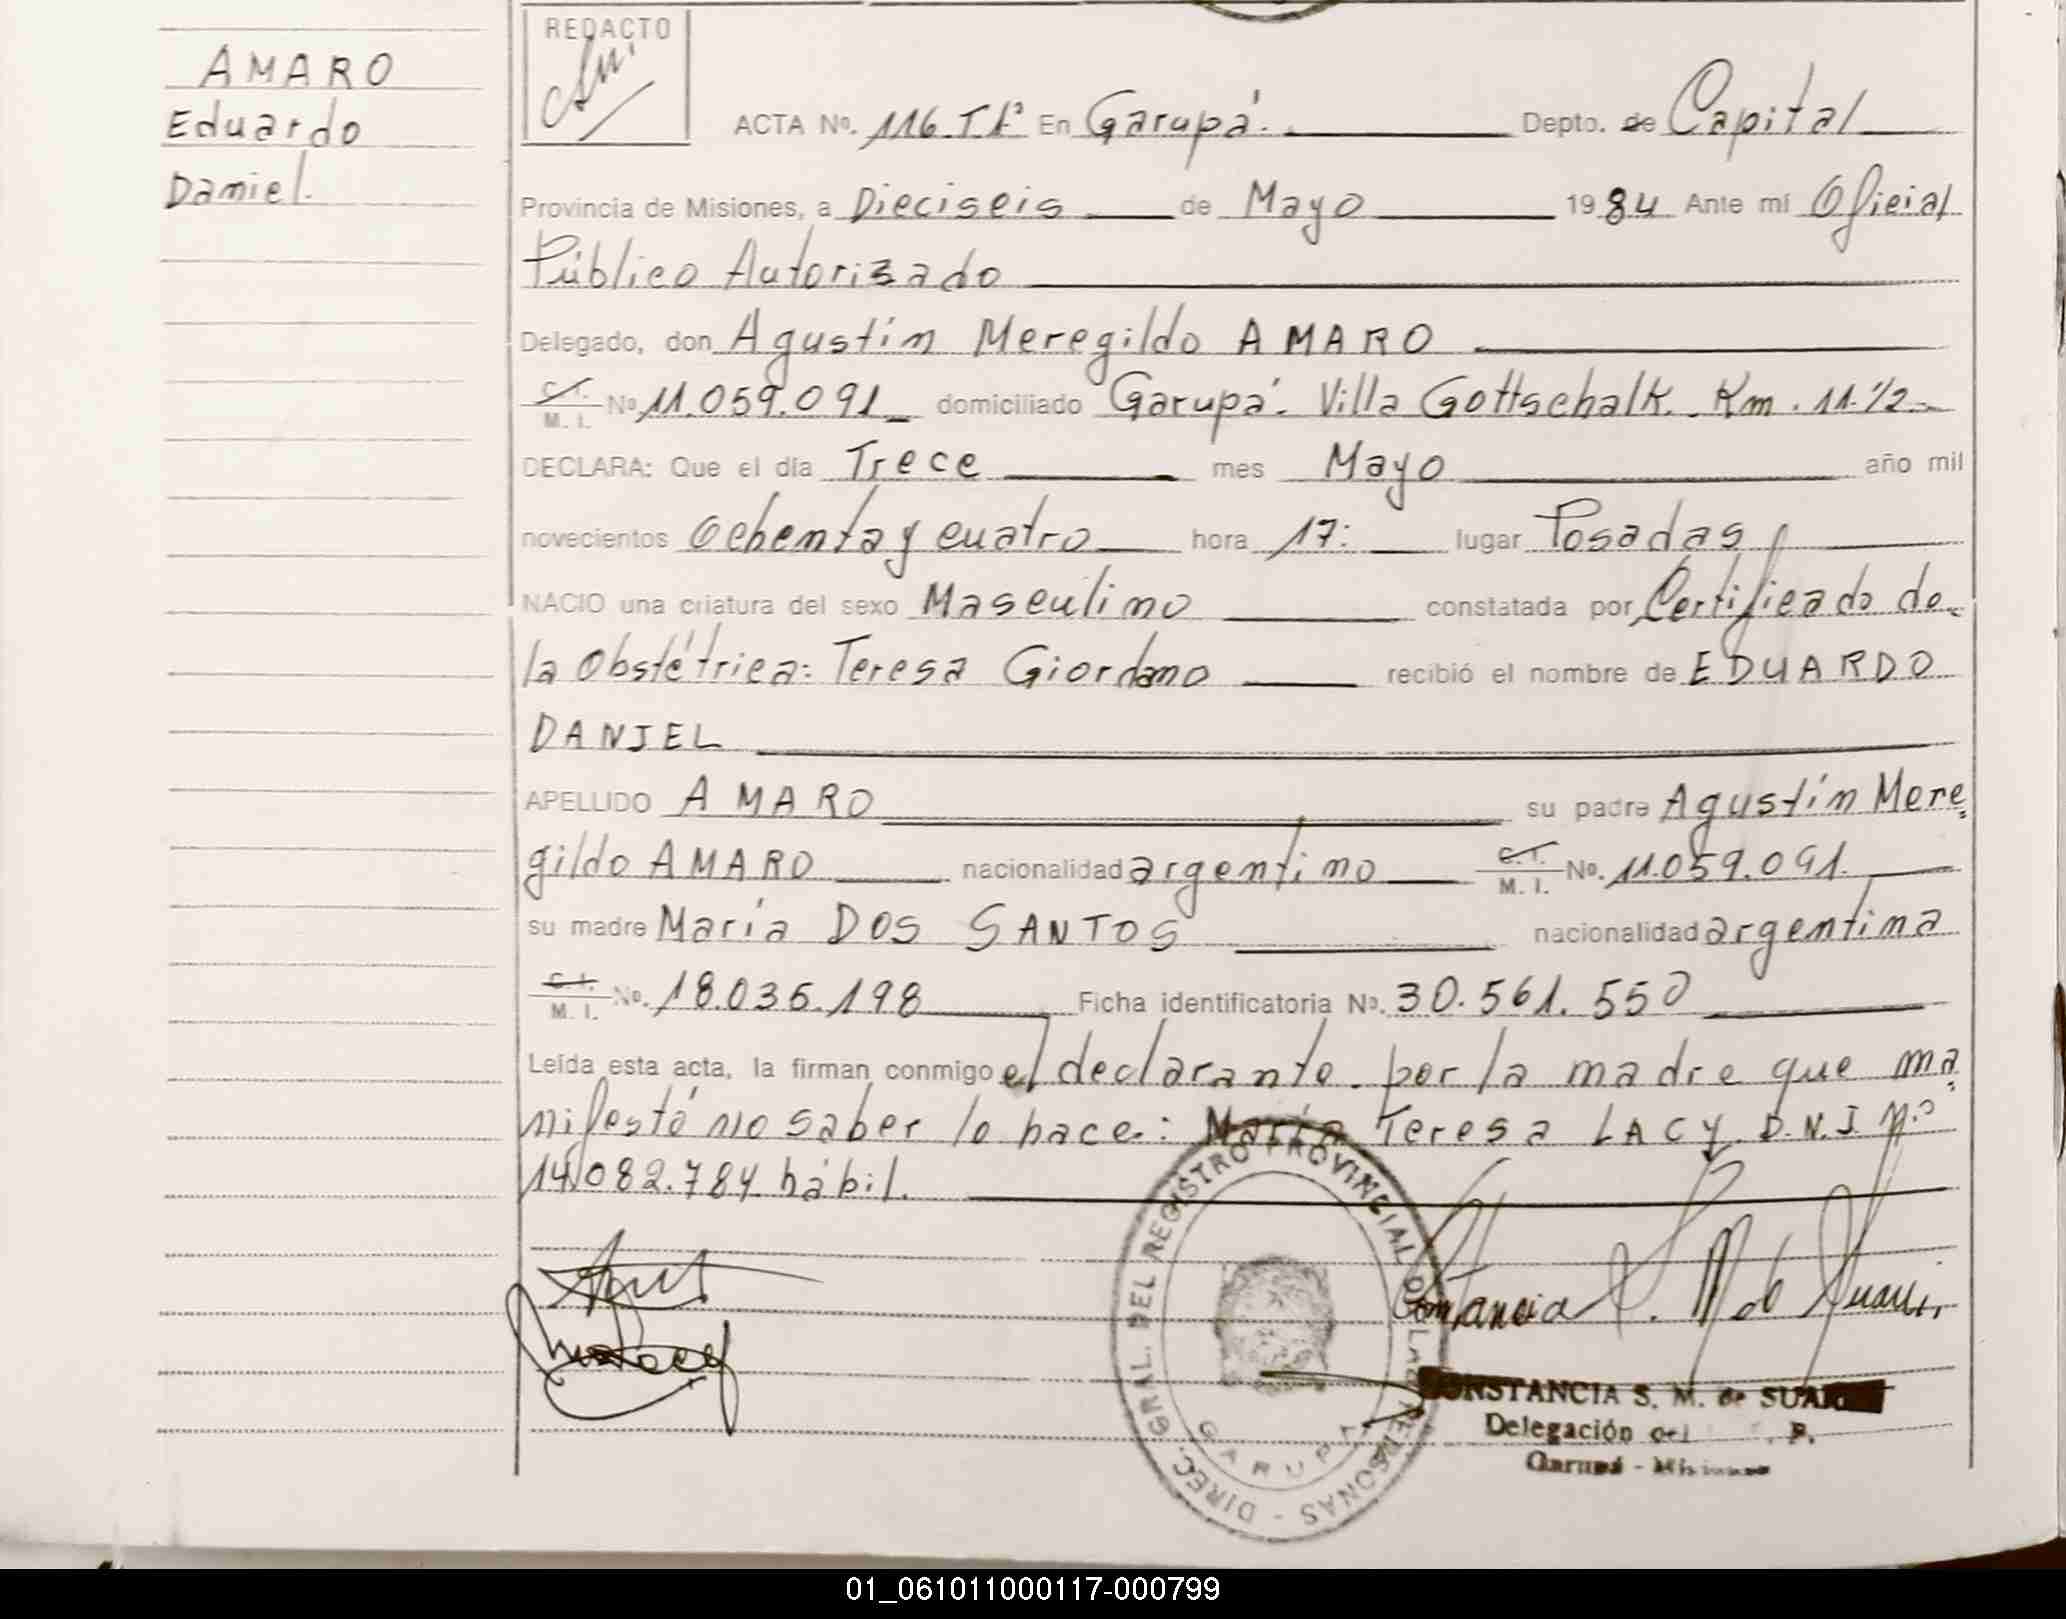 AMARO
Eduardo
Daniel.
REDACTO
ACTA Nº. 116 Tº1º En Garupá. Depto. de Capital
Provincia de Misiones, a Dieciseis de Mayo 1984 Ante mí Oficial
Público Autorizado
Delegado, don Agustín Meregildo AMARO
C.I. M. I. Nº 11.059.091 domiciliado Garupá. Villa Gottschalk. Km. 11.1/2
DECLARA: Que el día Trece mes Mayo año mil
novecientos ochenta y cuatro hora 17: lugar Posadas
NACIO una criatura del sexo Masculino constatada por Certificado de
la Obstétrica: Teresa Giordano recibió el nombre de EDUARDO
DANIEL
APELLIDO AMARO su padre Agustín Mere
gildo AMARO nacionalidad argentino C.I. M. I. No. 11.059.091.
su madre María DOS SANTOS nacionalidad argentina
C.I. M. I. No. 18.035.198 Ficha identificatoria Nº. 30.561.550
Leída esta acta, la firman conmigo el declarante. por la madre que ma
nifestó no saber lo hace: María Teresa LACY. D.N.I. Nº
14.082.784 hábil.
DIREC. GRAL. DEL REGISTRO PROVINCIAL DE LAS PERSONAS -
GARUPA
CONSTANCIA S. M. de SUAREZ
Delegación del
Garupá - Misiones
01_061011000117-000799